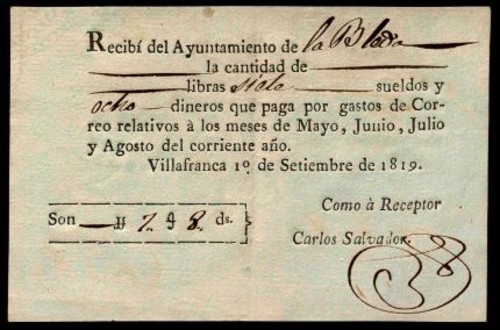 Recibí del Ayuntamiento de la Bleda
la cantidad de
libras siete sueldos y
ocho dineros que paga por gastos de Cor-
reo relativos à los meses de Mayo, Junio, Julio
y Agosto del corriente año.
Villafranca 1º de Setiembre de 1819.
Como à Receptor
Son — ħ 7. s 8. ds.
Carlos Salvador.